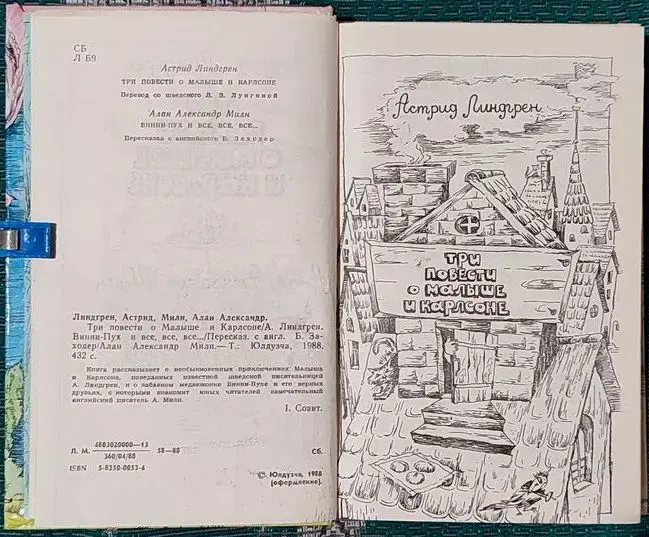 СБ
Л 69
Астрид Линдгрен
ТРИ ПОВЕСТИ О МАЛЫШЕ И КАРЛСОНЕ
Перевод со шведского Л. З. Лунгиной
Алан Александр Милн
ВИННИ-ПУХ И ВСЕ, ВСЕ, ВСЕ...
Пересказал с английского Б. Заходер
Линдгрен, Астрид, Милн, Алан Александр.
Три повести о Малыше и Карлсоне/А. Линдгрен.
Винни-Пух и все, все, все.../Пересказ. с англ. Б. За-
ходер/Алан Александр Милн.—Т.: Юлдузча, 1988.
432 с.
Книга рассказывает о необыкновенных приключениях Малыша
и Карлсона, поведанных известной шведской писательницей
А. Линдгрен, и о забавном медвежонке Винни-Пухе и его верных
друзьях, с которыми знакомит юных читателей замечательный
английский писатель А. Милн.
I. Соавт.
Л. М. 4803020000—13 / 360/04/88 58—88 Сб.
ISBN 5-8250-0053-4
© Юлдузча, 1988
(оформление).
Астрид Линдгрен
ТРИ
ПОВЕСТИ
О МАЛЫШЕ
И КАРЛСОНЕ